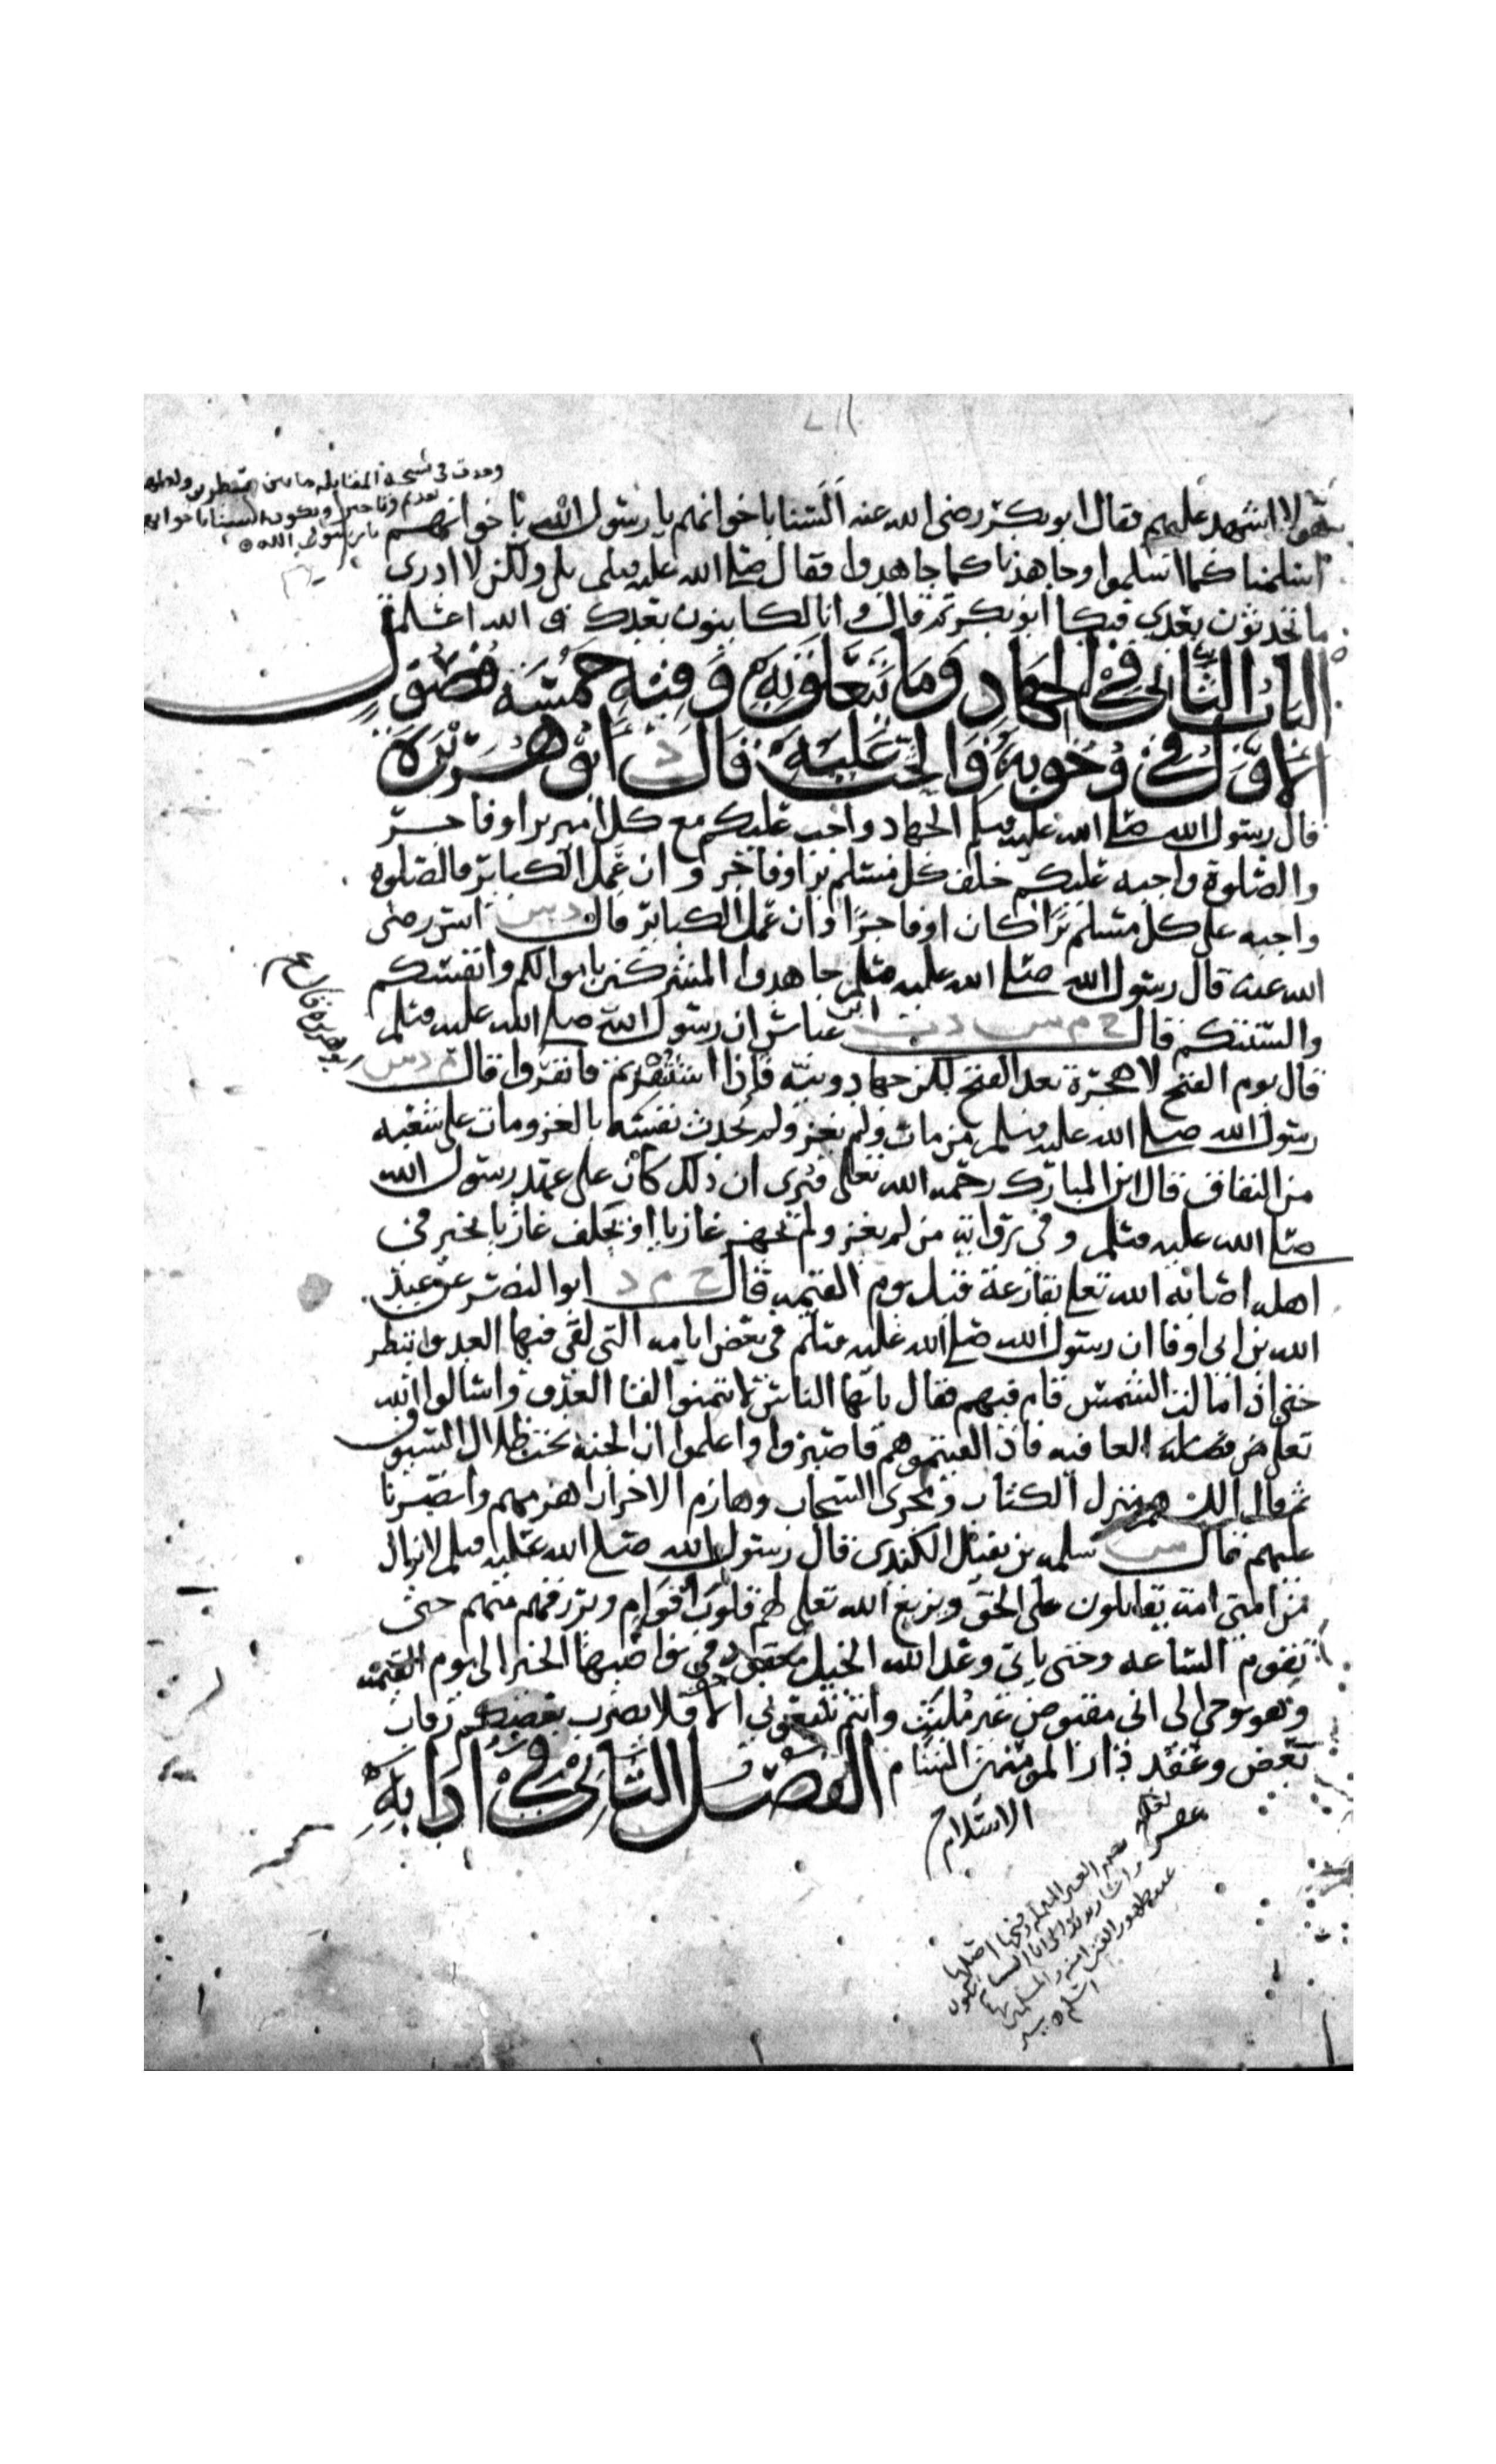 وجدت في نسخة المقابله ما بين
تقديم وتاخير ويكون السنا باخوانهم
يا رسول الله
هولا اشهد عليهم فقال ابو بكر رضى الله عنه السنا باخوانهم يا رسول الله باخوانهم
اسلمنا كما اسلموا وجاهدنا كما جاهدوا فقال صلى الله عليه وسلم بلى ولكن لا ادرى
ما تحدثون بعدي فبكا ابو بكر ثم قال وانا لكاينون بعدك والله اعلم
الباب الثاني في الجهاد وما يتعلق به وفيه خمسة فصول
الاول في وجوبه والحث عليه قال د ابو هريرة
قال رسول الله صلى الله عليه وسلم الجهاد واجب عليكم مع كل امير برا او فاجر
والصلوة واجبه عليكم خلف كل مسلم برا او فاجر وان عمل الكبائر والصلوه
واجبه على كل مسلم برا كان او فاجرا وان عمل الكبائر قال د س انس رضى
الله عنه قال رسول الله صلى الله عليه وسلم جاهدوا المشركين باموالكم وانفسكم
والسنتكم قال خ م س د ت ابن عباس ان رسول الله صلى الله عليه وسلم
قال يوم الفتح لا هجرة بعد الفتح لكن جهاد ونيه فاذا استنفرتم فانفروا قال م د س
ابو هريره قال
رسول الله صلى الله عليه وسلم من مات ولم يغز ولم يحدث نفسه بالغزو مات على شعبه
من النفاق قال ابن المبارك رحمه الله تعلى فنرى ان ذلك كان على عهد رسول الله
صلى الله عليه وسلم وفي رواية من لم يغز ولم يجهز غازيا او يخلف غازيا بخير في
اهله اصابه الله تعلى بقارعة قبل يوم القيمه قال خ م د ابو النضر عن عبد
الله بن ابي اوفا ان رسول الله صلى الله عليه وسلم في بعض ايامه التي لقي فيها العدو انتظر
حتى اذا مالت الشمس قام فيهم فقال يايها الناس لا تتمنوا لقا العدو واسالوا الله
تعلى من فضله العافيه فاذا لقيتموهم فاصبروا واعلموا ان الجنه تحت ظلال السيوف
ثم قال اللهم منزل الكتاب ومجرى السحاب وهازم الاحزاب اهزمهم وانصرنا
عليهم قال س سلمه بن نفيل الكندى قال رسول الله صلى الله عليه وسلم لا يزال
من امتى امة يقاتلون على الحق ويزيغ الله تعلى لهم قلوب اقوام ويرزقهم منهم حتى
تقوم الساعه وحتى ياتى وعد الله الخيل معقود في نواصيها الخير الى يوم القيمه
وهو يوحي الى انى مقبوض غير ملبث وانتم تتبعوني الا فلا يضرب بعضكم رقاب
بعض وعقر دار المومنين الشام الفصل الثاني في ادابه
الاسلام